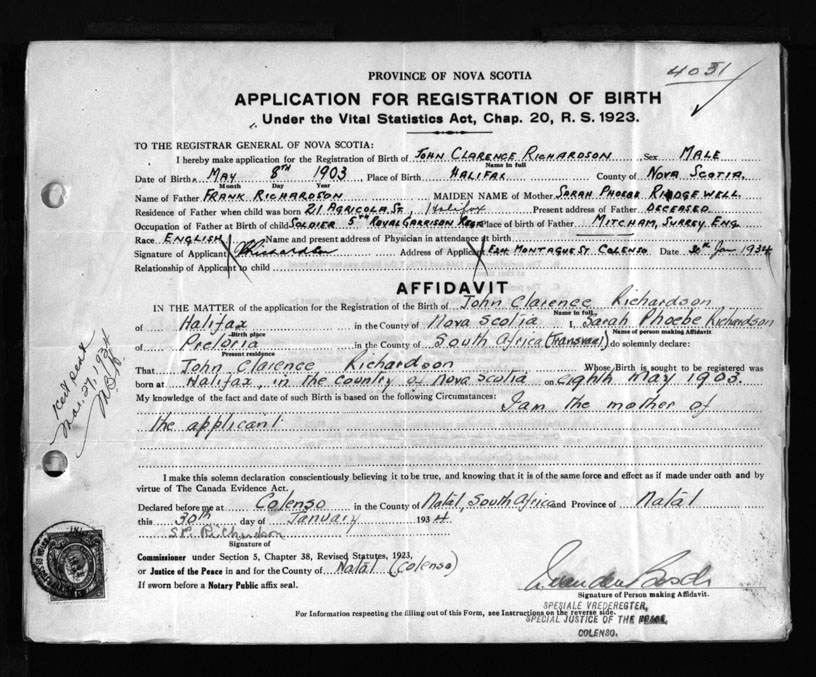 4031
PROVINCE OF NOVA SCOTIA
APPLICATION FOR REGISTRATION OF BIRTH
Under the Vital Statistics Act, Chap. 20, R. S. 1923.
TO THE REGISTRAR GENERAL OF NOVA SCOTIA:
I hereby make application for the Registration of Birth of JOHN CLARENCE RICHARDSON Sex MALE
Name in full
Date of Birth MAY 8TH 1903, Place of Birth HALIFAX County of NOVA SCOTIA.
Month Day Year
Name of Father FRANK RICHARDSON MAIDEN NAME of Mother SARAH PHOEBE RIDGEWELL
Residence of Father when child was born 21 AGRICOLA ST, Halifax Present address of Father DECEASED
Occupation of Father at Birth of child SOLDIER 5TH ROYAL GARRISON REGT Place of birth of Father MITCHAM, SURREY ENG
Race ENGLISH Name and present address of Physician in attendance at birth
Signature of Applicant Richardson Address of Applicant MONTAGUE ST COLENSO Date 30th Jan 1934
Relationship of Applicant to child
AFFIDAVIT
IN THE MATTER of the application for the Registration of the Birth of John Clarence Richardson
Name in full
of Halifax in the County of Nova Scotia I, Sarah Phoebe Richardson
Birth place Name of person making Affidavit
of Pretoria in the County of South Africa (Transvaal) do solemnly declare:
Present residence
That John Clarence Richardson Whose Birth is sought to be registered was
born at Halifax, in the country of Nova Scotia on eighth May 1903.
My knowledge of the fact and date of such Birth is based on the following Circumstances: I am the mother of
the applicant.
I make this solemn declaration conscientiously believing it to be true, and knowing that it is of the same force and effect as if made under oath and by
virtue of The Canada Evidence Act.
Declared before me at Colenso in the County of Natal, South Africa and Province of Natal
this 30th day of January 1934.
S P Richardson
Signature of
Commissioner under Section 5, Chapter 38, Revised Statutes, 1923,
or Justice of the Peace in and for the County of Natal (Colenso)
If sworn before a Notary Public affix seal.
Signature of Person making Affidavit.
For Information respecting the filling out of this Form, see Instructions on the reverse side.
SPESIALE VREDEREGTER,
SPECIAL JUSTICE OF THE PEACE,
COLENSO.
Cert sent
Mar. 27, 1934